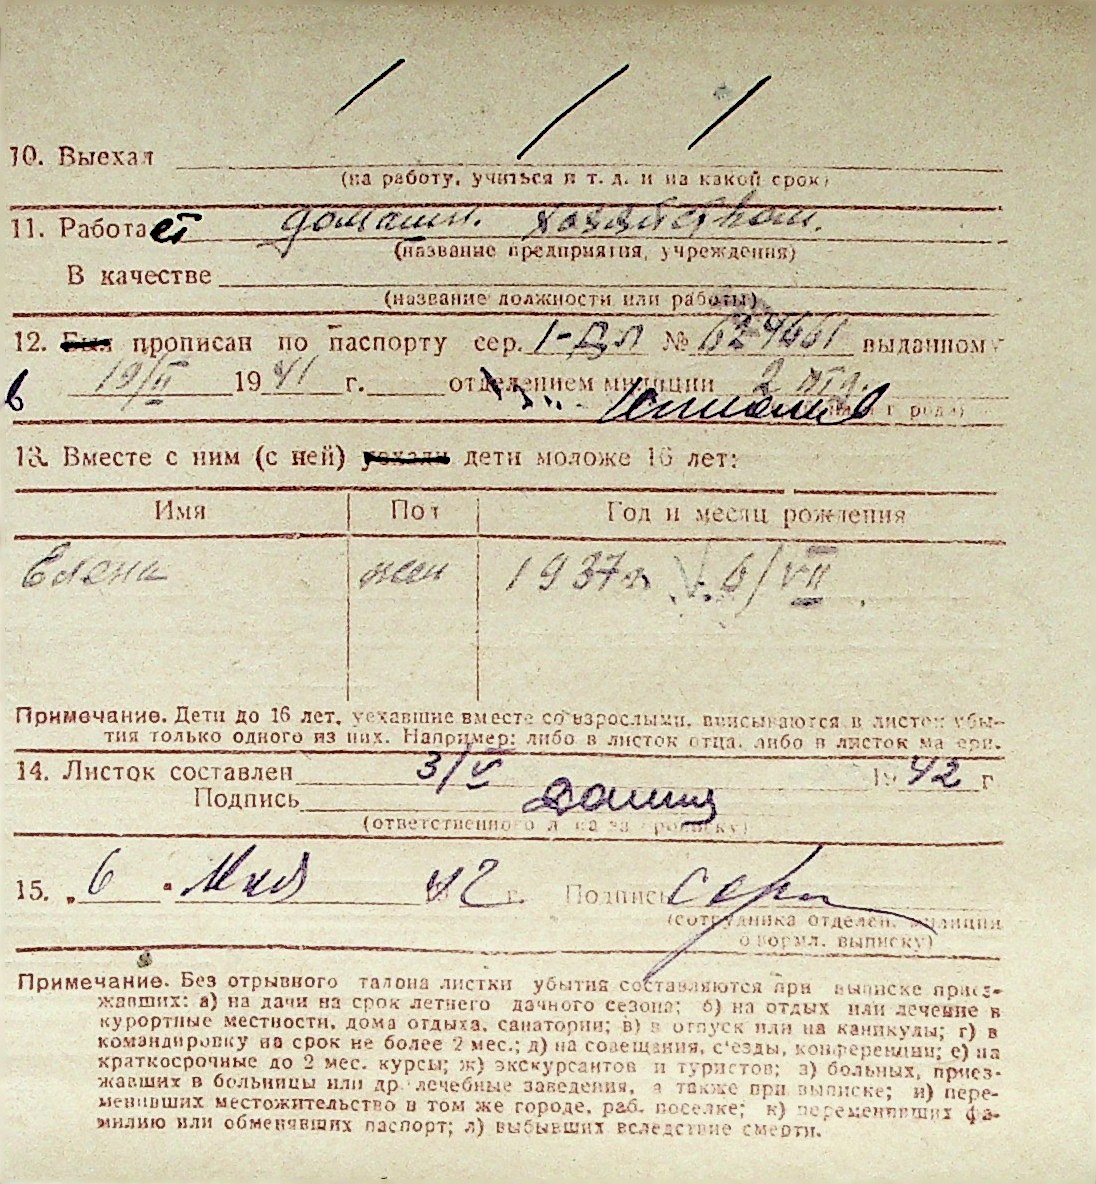 10. Выехал
(на работу, учиться и т. д. и на какой срок)
11. Работает домашн. хозяйством.
(название предприятия, учреждения)
В качестве
(название должности или работы)
12. Был прописан по паспорту сер. I-ДЛ № 624661 выданному
в 19/II 1941 г. отделением милиции 2 отд.
13. Вместе с ним (с ней) уехали дети моложе 16 лет:
Имя Пол Год и месяц рождения
Елена жен 1937 г. 6/VII
Примечание. Дети до 16 лет, уехавшие вместе со взрослыми, вписываются в листок убы-
тия только одного из них. Например: либо в листок отца, либо в листок матери.
14. Листок составлен 3/V 1942 г
Подпись
(ответственного лица за прописку)
15. „6" Мая 42 г. Подпись
(сотрудника отделен. милиции
оформл. выписку)
Примечание. Без отрывного талона листки убытия составляются при выписке приез-
жавших: а) на дачи на срок летнего дачного сезона; б) на отдых или лечение в
курортные местности, дома отдыха, санатории; в) в отпуск или на каникулы; г) в
командировку на срок не более 2 мес.; д) на совещания, с'езды, конференции; е) на
краткосрочные до 2 мес. курсы; ж) экскурсантов и туристов; з) больных, приез-
жавших в больницы или др. лечебные заведения, а также при выписке; и) пере-
менивших местожительство в том же городе, раб. поселке; к) переменивших фа-
милию или обменявших паспорт; л) выбывших вследствие смерти.